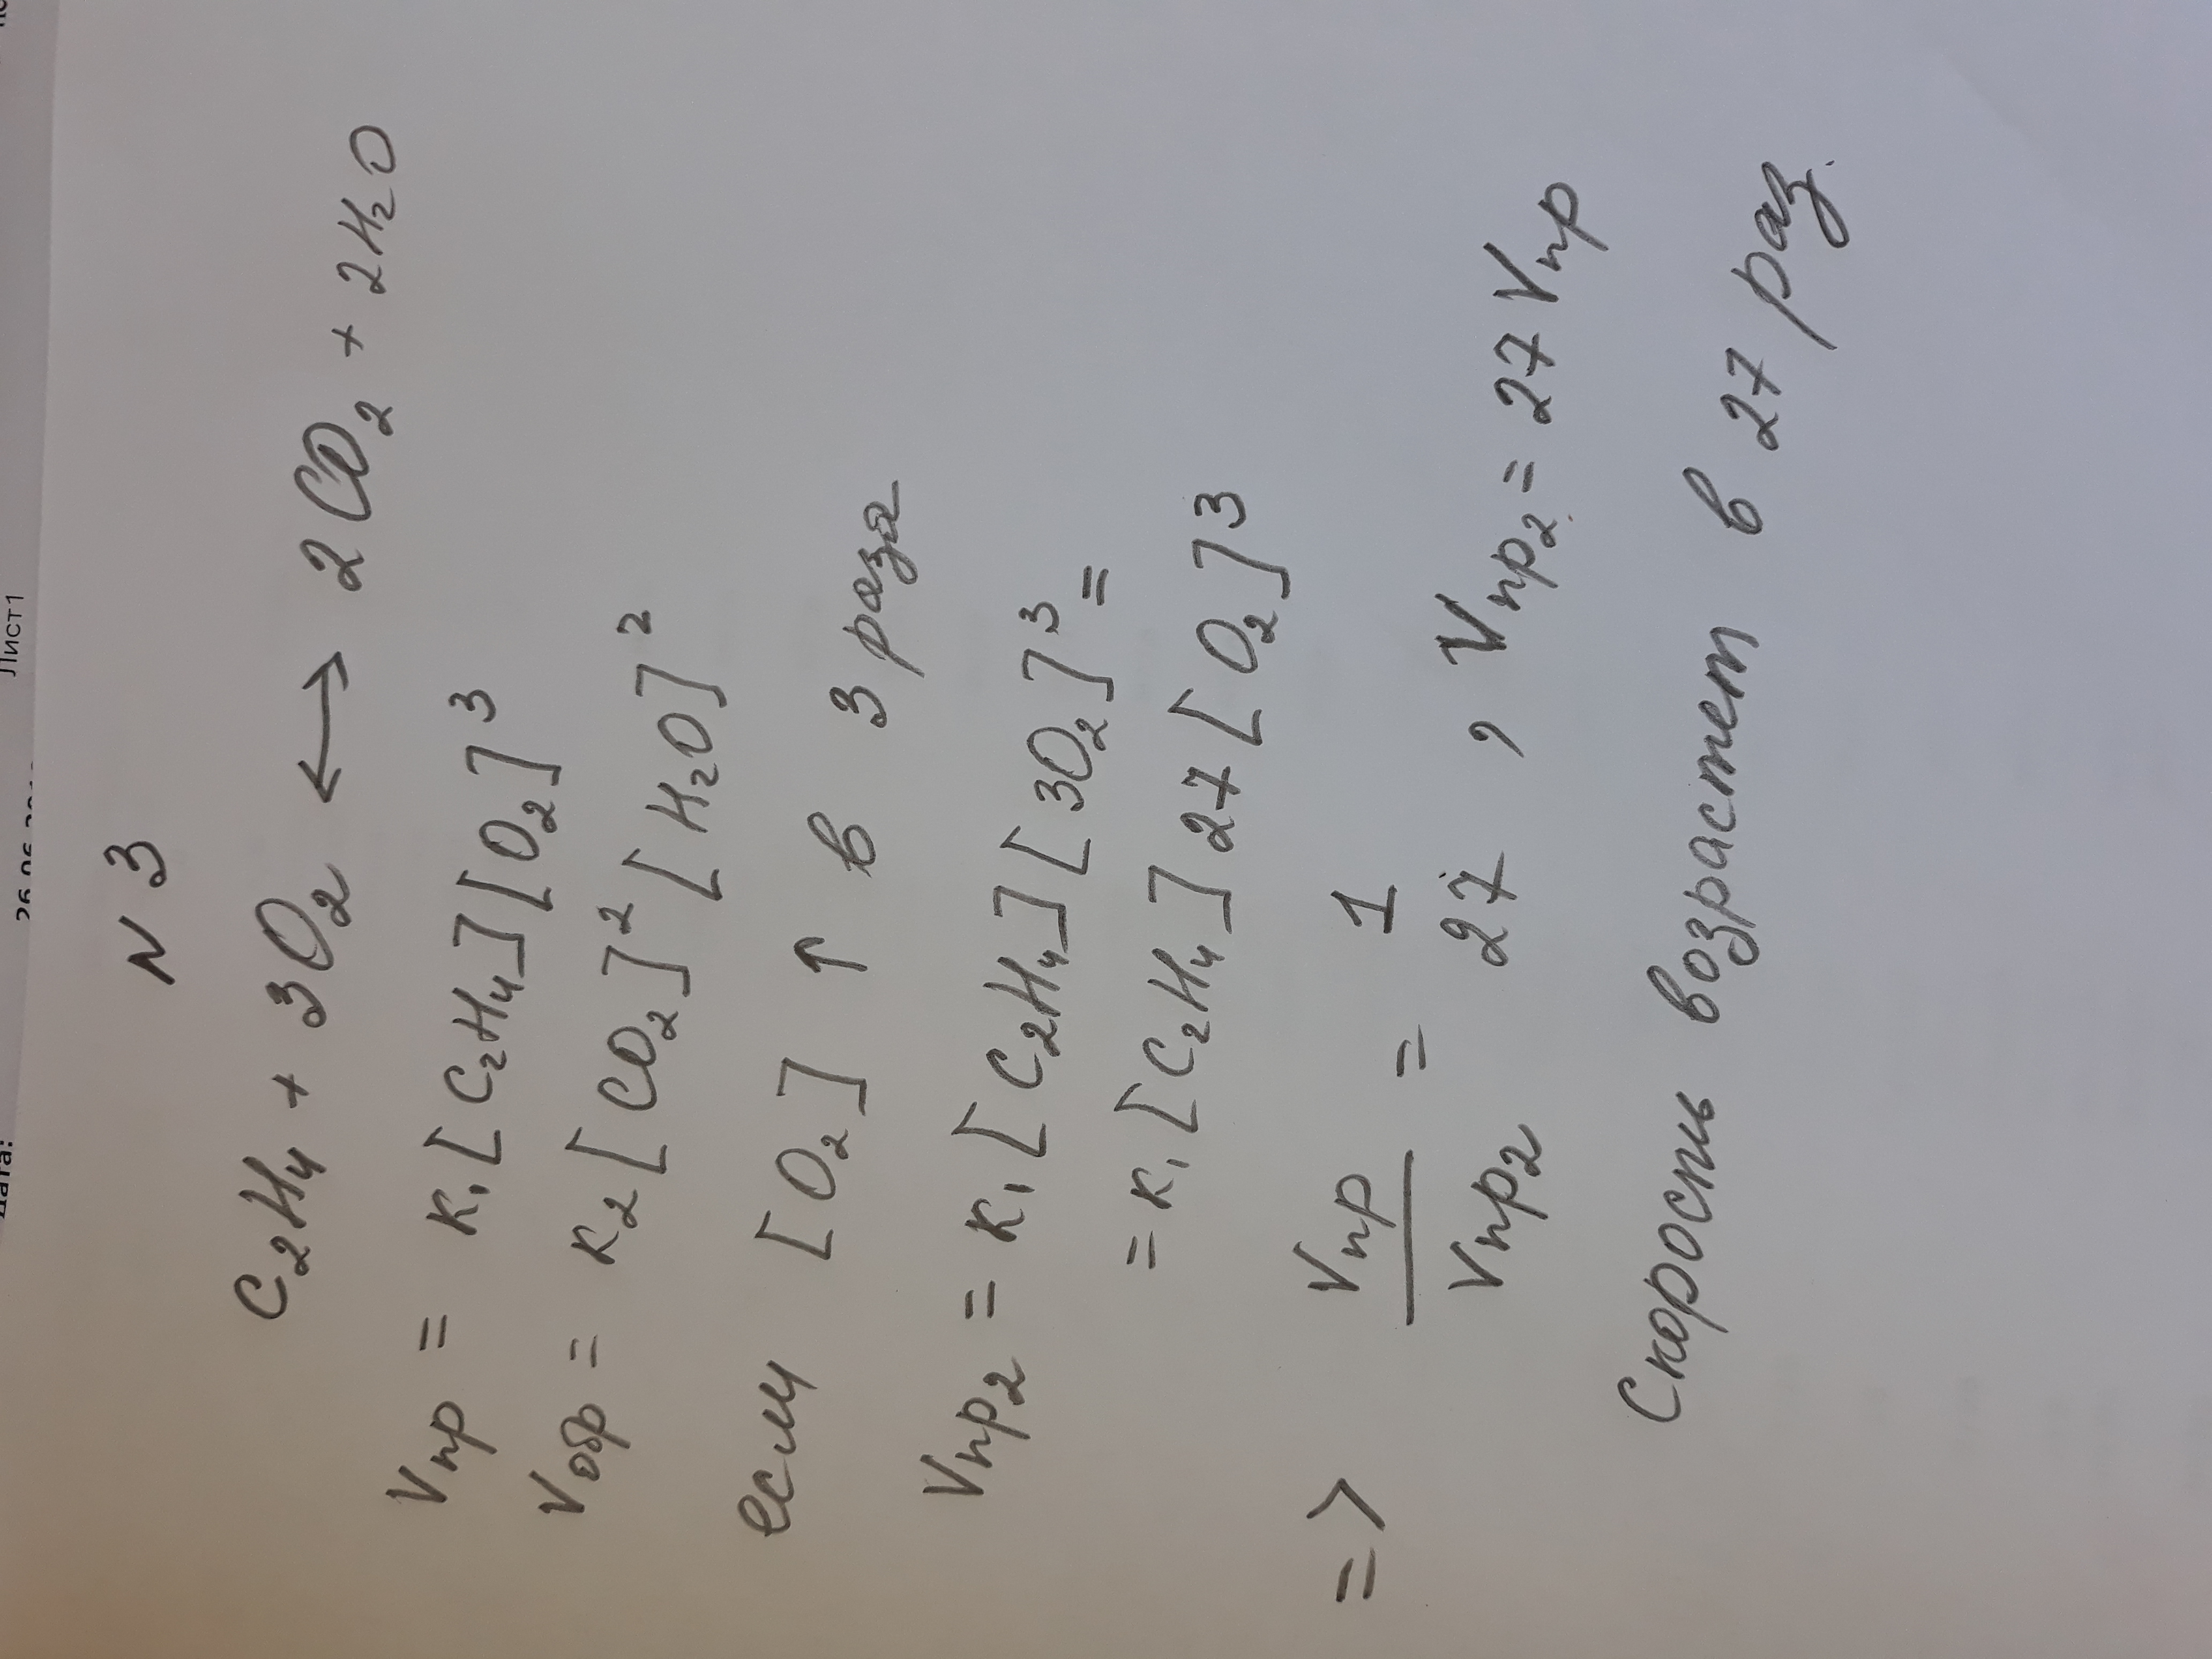 Лист1
N 3
C₂H₄ + 3O₂ ⟷ 2CO₂ + 2H₂O
Vпр = к₁[C₂H₄][O₂]³
Vобр = к₂[CO₂]²[H₂O]²
если [O₂] ↑ в 3 раза
Vпр₂ = к₁[C₂H₄][3O₂]³ =
= к₁[C₂H₄]27[O₂]³
=> Vпр/Vпр₂ = 1/27 , Vпр₂ = 27Vпр
Скорость возрастет в 27 раз.